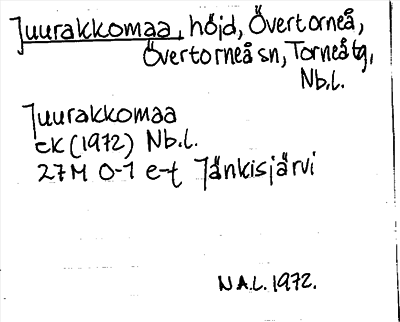 Juurakkomaa, höjd, Övertorneå,
Övertorneå sn, Torneå tg,
Nb.l.
Juurakkomaa
ek (1972) Nb.l.
27M 0-1 e-f Jänkisjärvi
N.A.L. 1972.